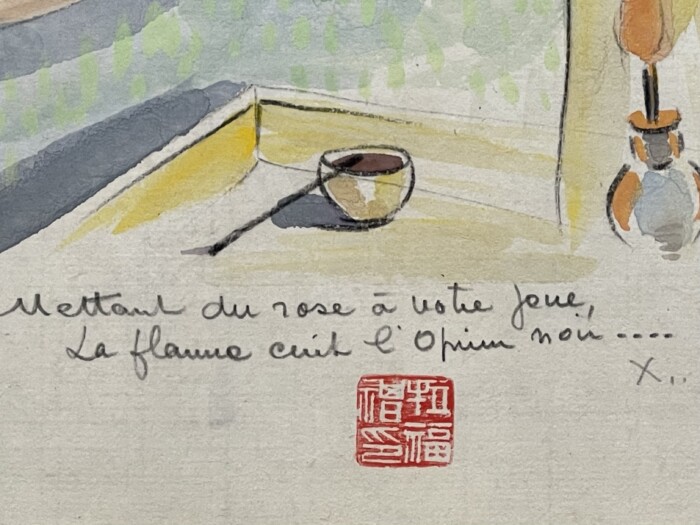 Mettant du rose à votre joue,
La flamme cuit l'Opium noir ....
X..
拉福
印